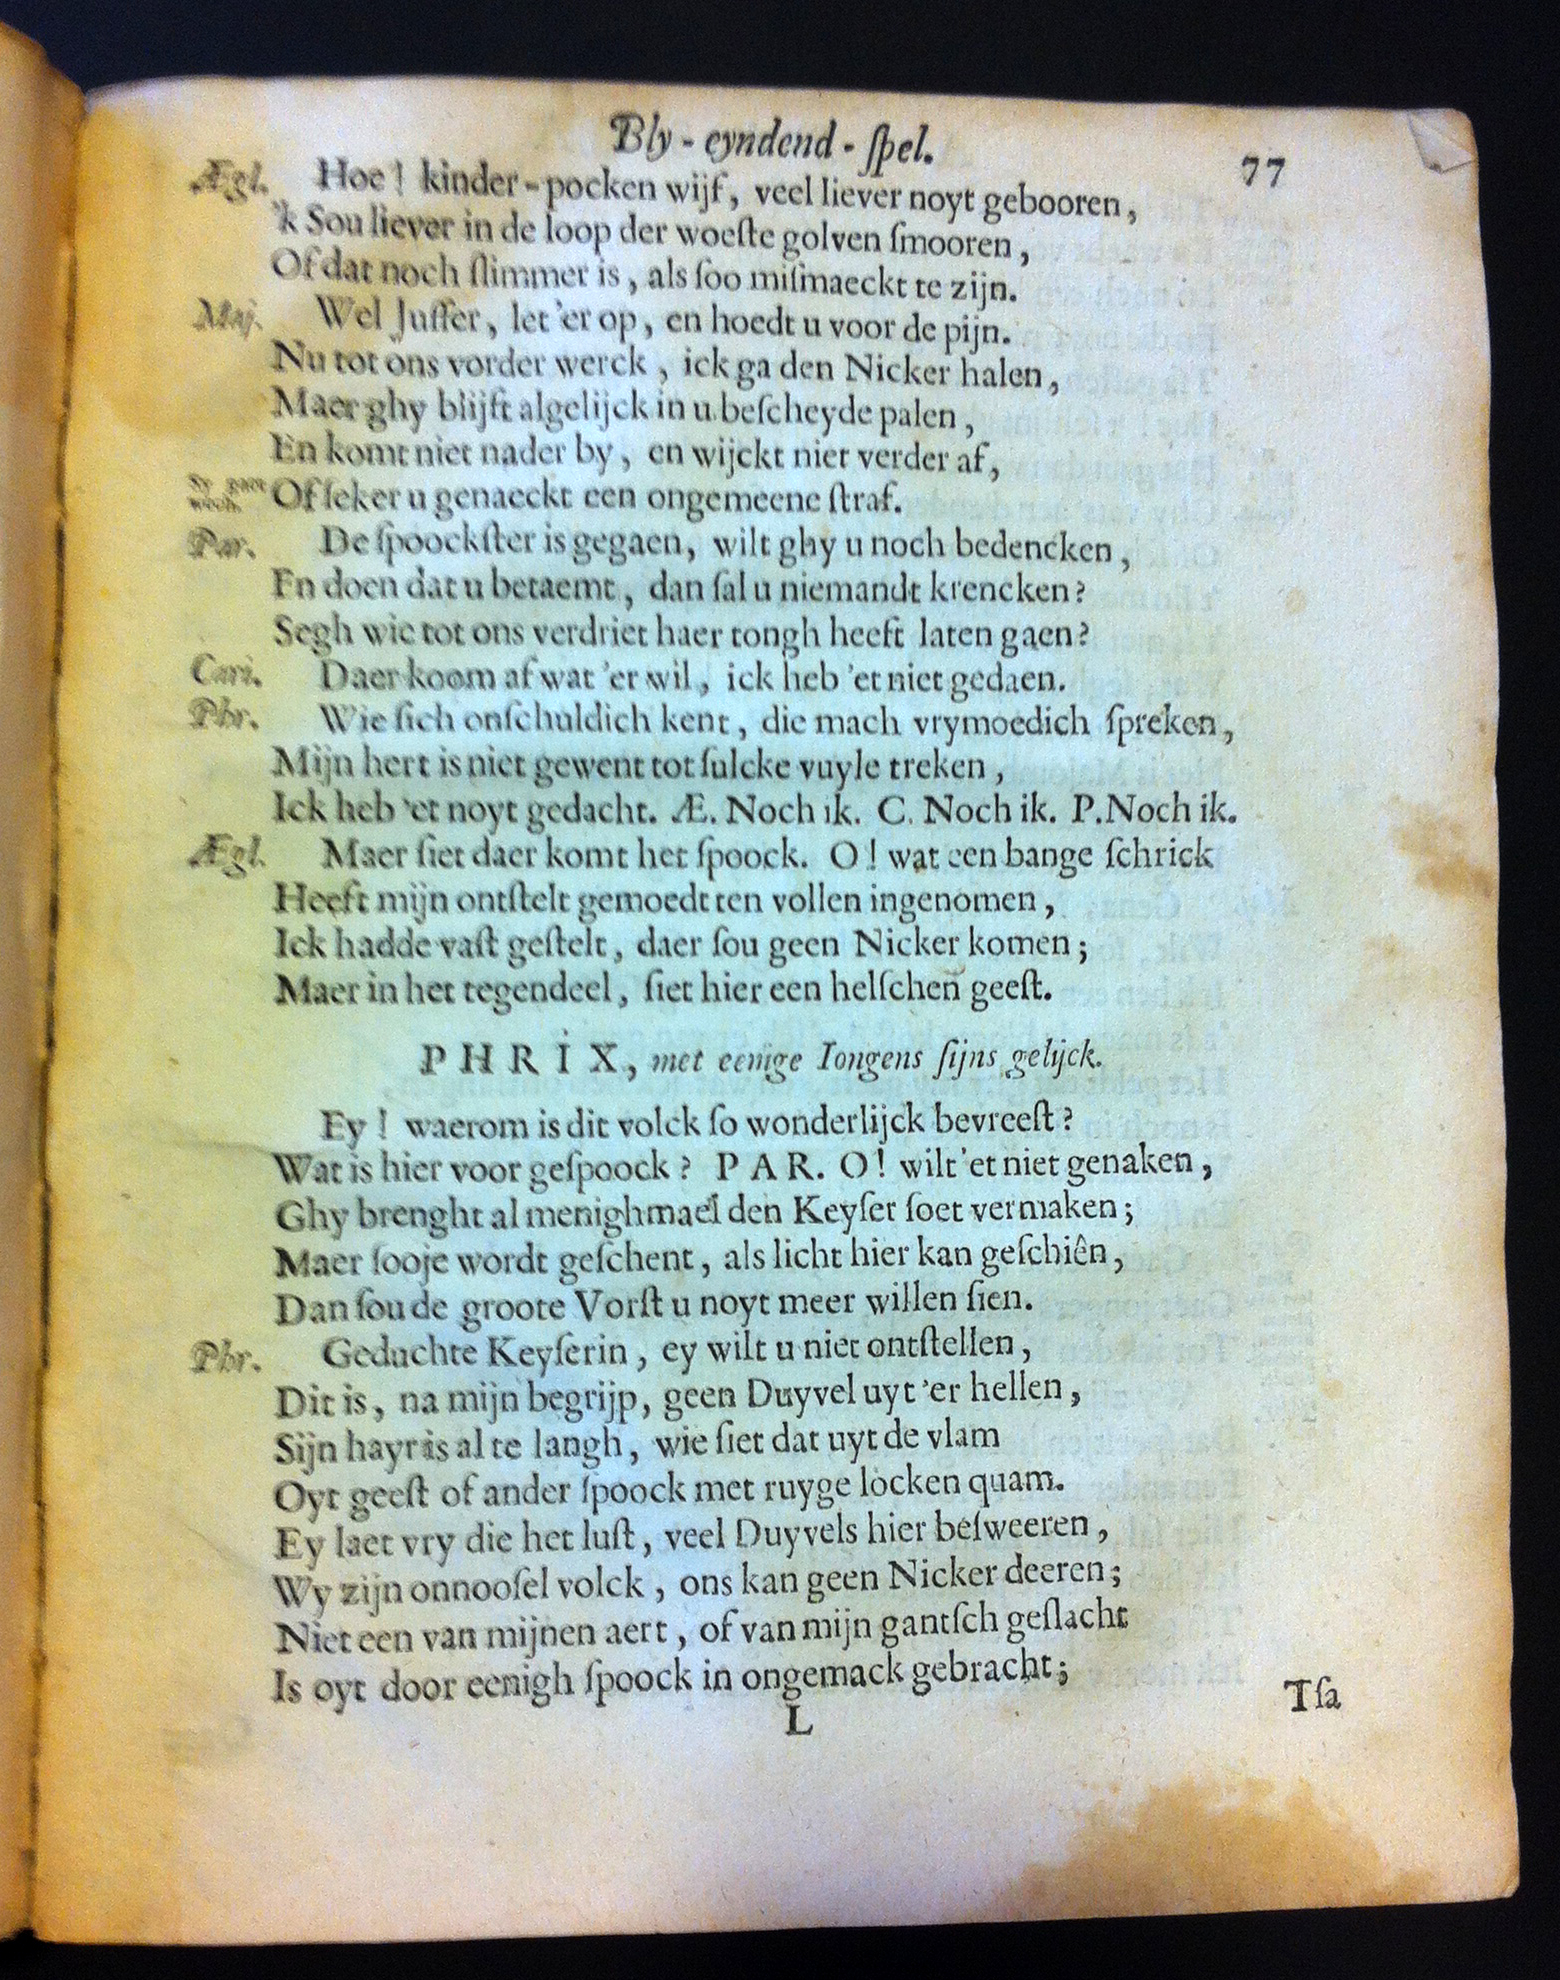 Bly-eyndend-ſpel. 77
Ægl. Hoe! kinder-pocken wijf, veel liever noyt gebooren,
'k Sou liever in de loop der woeſte golven ſmooren,
Of dat noch ſlimmer is, als ſoo miſmaeckt te zijn.
Maj. Wel Juffer, let 'er op, en hoedt u voor de pijn.
Nu tot ons vorder werck, ick ga den Nicker halen,
Maer ghy blijft algelijck in u beſcheyde palen,
En komt niet nader by, en wijckt niet verder af,
Sy gaet wech. Of ſeker u genaeckt een ongemeene ſtraf.
Par. De ſpoockſter is gegaen, wilt ghy u noch bedencken,
En doen dat u betaemt, dan ſal u niemandt krencken?
Segh wie tot ons verdriet haer tongh heeft laten gaen?
Cari. Daer koom af wat 'er wil, ick heb 'et niet gedaen.
Phr. Wie ſich onſchuldich kent, die mach vrymoedich ſpreken,
Mijn hert is niet gewent tot ſulcke vuyle treken,
Ick heb 'et noyt gedacht. Æ. Noch ik. C. Noch ik. P. Noch ik.
Ægl. Maer ſiet daer komt het ſpoock. O! wat een bange ſchrick
Heeft mijn ontſtelt gemoedt ten vollen ingenomen,
Ick hadde vaſt geſtelt, daer ſou geen Nicker komen;
Maer in het tegendeel, ſiet hier een helſchen geeſt.
PHRIX, met eenige Iongens ſijns gelijck.
Ey! waerom is dit volck ſo wonderlijck bevreeſt?
Wat is hier voor geſpoock? PAR. O! wilt 'et niet genaken,
Ghy brenght al menighmael den Keyſer ſoet vermaken;
Maer ſooje wordt geſchent, als licht hier kan geſchiên,
Dan ſou de groote Vorſt u noyt meer willen ſien.
Phr. Geduchte Keyſerin, ey wilt u niet ontſtellen,
Dit is, na mijn begrijp, geen Duyvel uyt 'er hellen,
Sijn hayr is al te langh, wie ſiet dat uyt de vlam
Oyt geeſt of ander ſpoock met ruyge locken quam.
Ey laet vry die het luſt, veel Duyvels hier beſweeren,
Wy zijn onnooſel volck, ons kan geen Nicker deeren;
Niet een van mijnen aert, of van mijn gantſch geſlacht
Is oyt door eenigh ſpoock in ongemack gebracht;
L Tſa